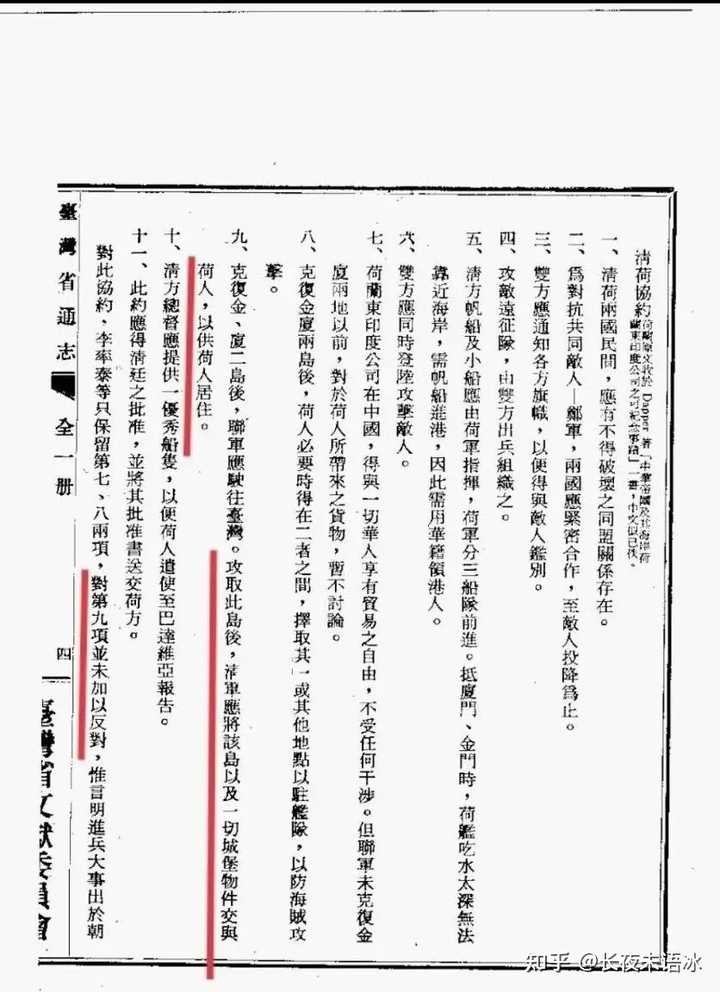 清荷協約荷蘭原文收於 Dapper 著「中華帝國及北海岸荷
蘭東印度公司之可紀念事蹟」一書，中文似已佚。
一、清荷兩國民間，應有不得破壞之同盟關係存在。
二、爲對抗共同敵人—鄭軍，兩國應緊密合作，至敵人投降爲止。
三、雙方應通知各方旗幟，以便得與敵人鑑別。
四、攻敵遠征隊，由雙方出兵組織之。
五、清方帆船及小船應由荷軍指揮，荷軍分三船隊前進。抵廈門、金門時，荷艦吃水太深無法
靠近海岸，需帆船進港，因此需用華籍領港人。
六、雙方應同時登陸攻擊敵人。
七、荷蘭東印度公司在中國，得與一切華人享有貿易之自由，不受任何干涉。但聯軍未克復金
廈兩地以前，對於荷人所帶來之貨物，暫不討論。
八、克復金廈兩島後，荷人必要時得在二者之間，擇取其一或其他地點以駐艦隊，以防海賊攻
擊。
九、克復金、廈二島後，聯軍應駛往臺灣。攻取此島後，清軍應將該島以及一切城堡物件交與
荷人，以供荷人居住。
十、清方總督應提供一優秀船隻，以便荷人遣使至巴達維亞報告。
十一、此約應得清廷之批准，並將其批准書送交荷方。
對此協約，李率泰等只保留第七、八兩項，對第九項並未加以反對，惟言明進兵大事出於朝
臺灣省通志 全一册
四
臺灣省文獻委員會
知乎 @长夜未语冰